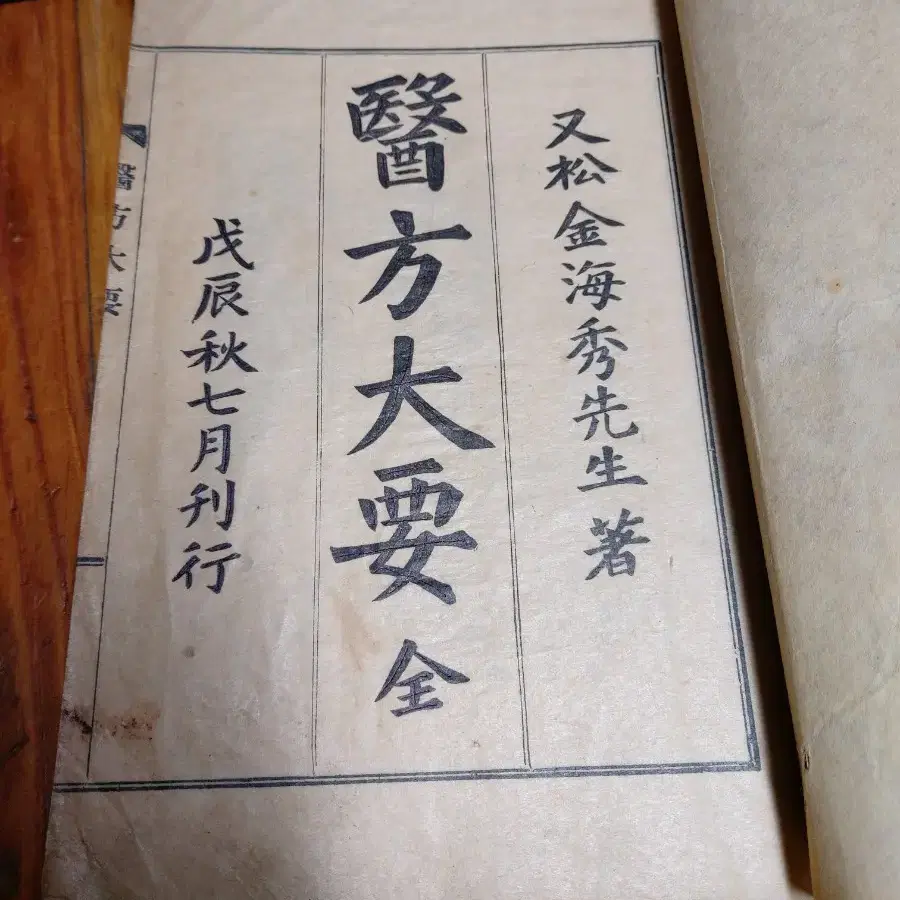 又松金海秀先生 著
醫方大要 全
戊辰秋七月刊行
醫方大要